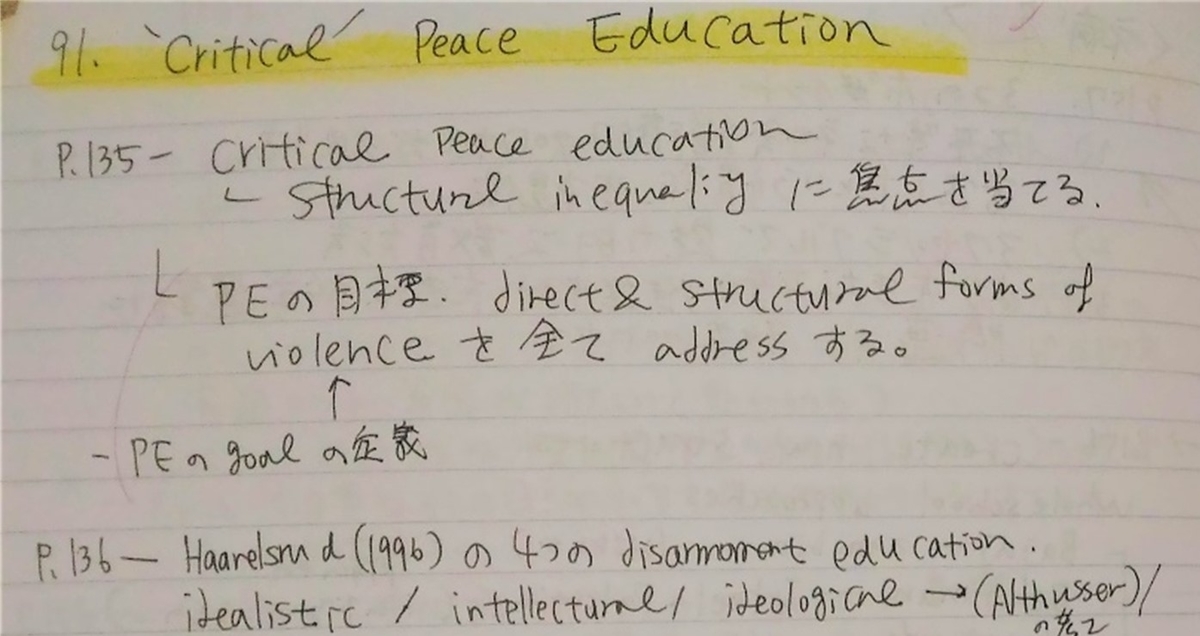 91. 'Critical' Peace Education
P.135- Critical Peace education
structural inequality に焦点を当てる.
PEの目標. direct & structural forms of
violence を全て address する。
↑
- PEの goal の定義
P.136- Haarelsmd (1996) の4つの disarmoment education.
idealistic / intellectural / ideological → (Althusser) /
の考え